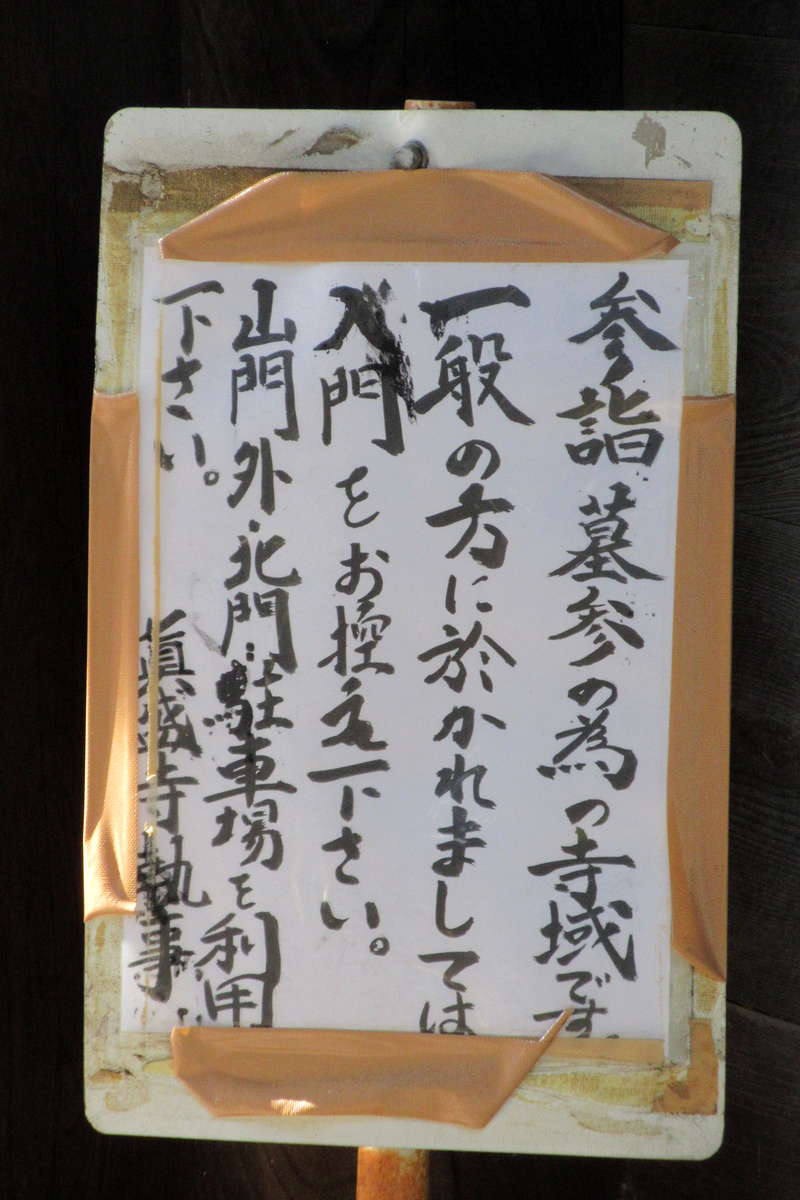 参詣墓参の為の寺域です
一般の方に於かれましては
入門をお控え下さい。
山門外・北門駐車場を利用
下さい。
眞盛寺執事